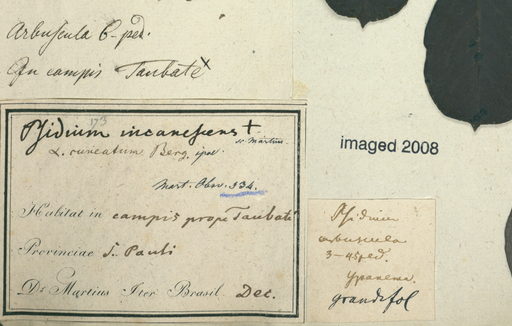 Arbuscula 6-ped.
In campis Taubatè
173
Psidium incanescens †
v. Martius.
α. cuneatum Berg. ipse.
Mart. Obsv. 934.
Habitat in campis prope Taubaté
Provinciae S. Pauli
Dr. Martius Iter Brasil. Dec.
imaged 2008
Psidium
arbuscula
3-4 ped.
Ypanema.
grandifol